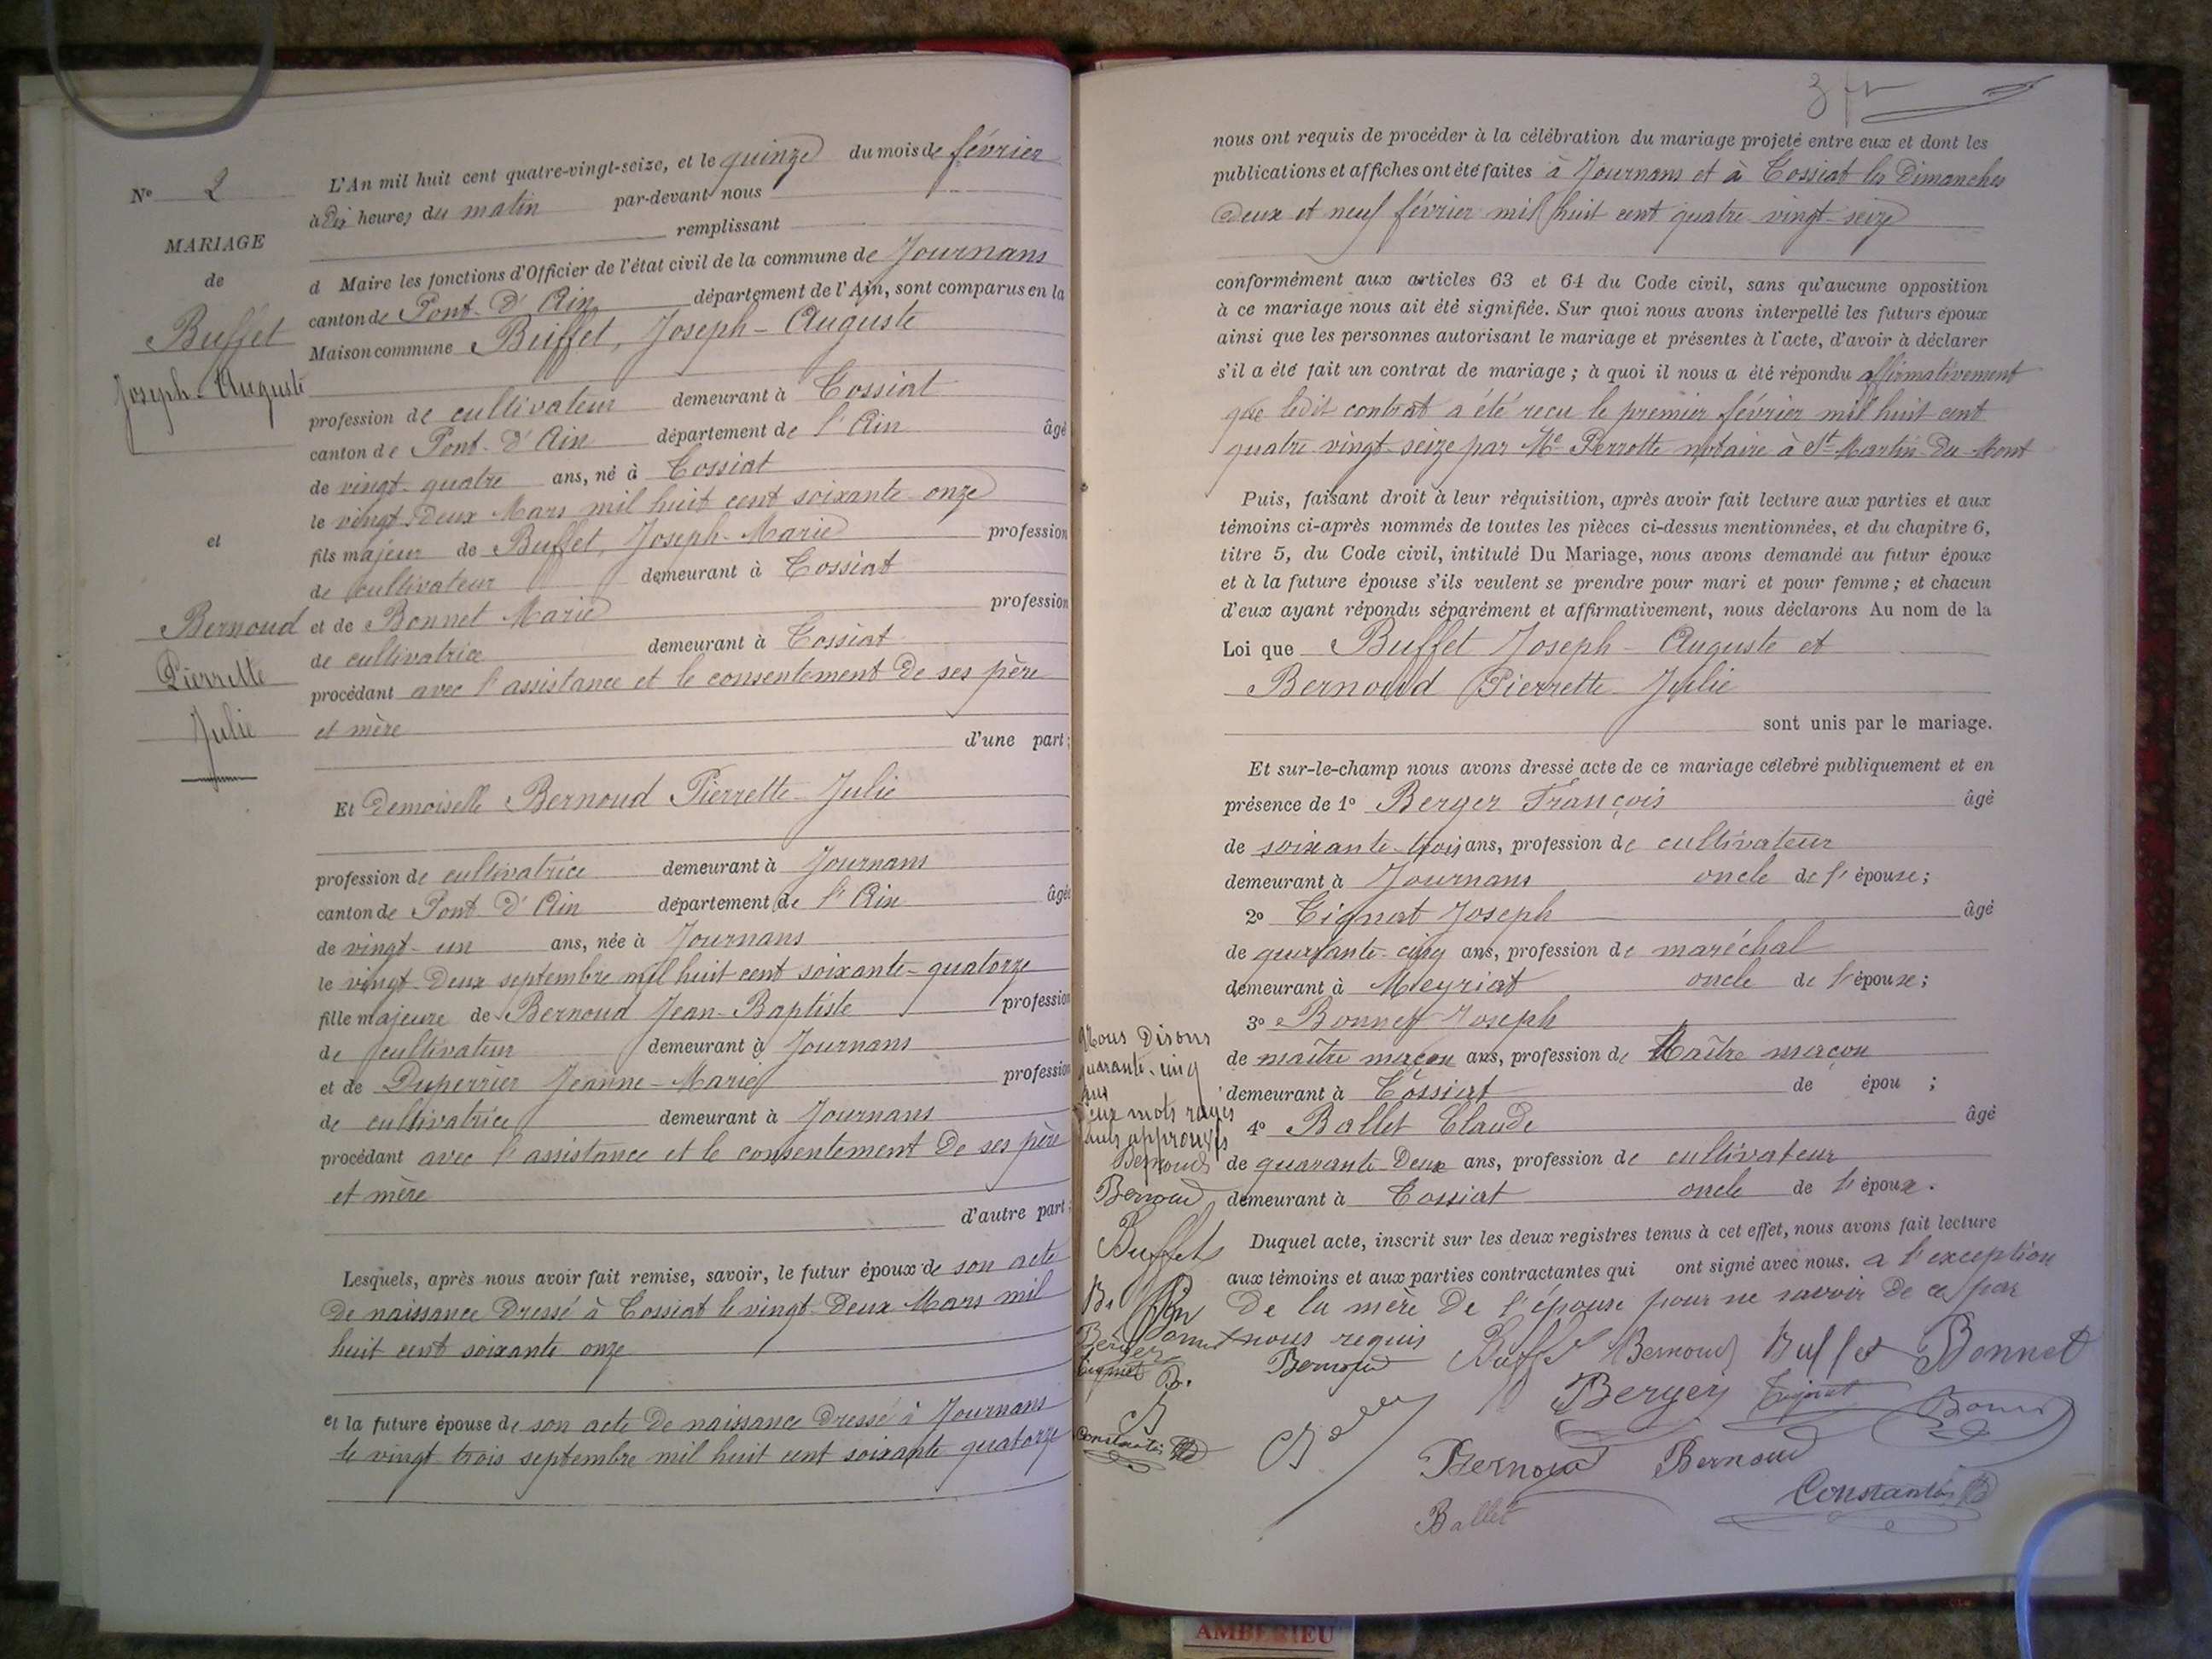 N° 2
MARIAGE
de
Buffet
Joseph-Auguste
et
Bernoud
Pierrette
Julie
L'An mil huit cent quatre-vingt-seize, et le quinze du mois de février
à Dix heures du matin par-devant nous
remplissant
d Maire les fonctions d'Officier de l'état civil de la commune de Journans
canton de Pont-d'Ain département de l'Ain, sont comparus en la
Maison commune Buffet, Joseph-Auguste
profession de cultivateur demeurant à Tossiat
canton de Pont-d'Ain département de l'Ain âgé
de vingt-quatre ans, né à Tossiat
le vingt-deux Mars mil huit cent soixante-onze
fils majeur de Buffet, Joseph-Marie profession
de cultivateur demeurant à Tossiat
et de Bonnet Marie profession
de cultivatrice demeurant à Tossiat
procédant avec l'assistance et le consentement de ses père
et mère
d'une part;
Et Demoiselle Bernoud Pierrette-Julie
profession de cultivatrice demeurant à Journans
canton de Pont-d'Ain département de l'Ain âgée
de vingt-un ans, née à Journans
le vingt-deux septembre mil huit cent soixante-quatorze
fille majeure de Bernoud Jean-Baptiste profession
de cultivateur demeurant à Journans
et de Duperrier Jeanne-Marie profession
de cultivatrice demeurant à Journans
procédant avec l'assistance et le consentement de ses père
et mère
d'autre part;
Lesquels, après nous avoir fait remise, savoir, le futur époux de son acte
de naissance dressé à Tossiat le vingt-deux Mars mil
huit cent soixante onze
et la future épouse de son acte de naissance dressé à Journans
le vingt-trois septembre mil huit cent soixante quatorze
nous ont requis de procéder à la célébration du mariage projeté entre eux et dont les
publications et affiches ont été faites à Journans et à Tossiat les Dimanches
deux et neuf février mil huit cent quatre-vingt-seize
conformément aux articles 63 et 64 du Code civil, sans qu'aucune opposition
à ce mariage nous ait été signifiée. Sur quoi nous avons interpellé les futurs époux
ainsi que les personnes autorisant le mariage et présentes à l'acte, d'avoir à déclarer
s'il a été fait un contrat de mariage; à quoi il nous a été répondu affirmativement
que ledit contrat a été reçu le premier février mil huit cent
quatre-vingt-seize par Me Perrotte notaire à St-Martin-du-Mont
Puis, faisant droit à leur réquisition, après avoir fait lecture aux parties et aux
témoins ci-après nommés de toutes les pièces ci-dessus mentionnées, et du chapitre 6,
titre 5, du Code civil, intitulé Du Mariage, nous avons demandé au futur époux
et à la future épouse s'ils veulent se prendre pour mari et pour femme; et chacun
d'eux ayant répondu séparément et affirmativement, nous déclarons Au nom de la
Loi que Buffet Joseph-Auguste et
Bernoud Pierrette-Julie
sont unis par le mariage.
Et sur-le-champ nous avons dressé acte de ce mariage célébré publiquement et en
présence de 1° Berger François âgé
de soixante-trois ans, profession de cultivateur
demeurant à Journans oncle de l'épouse;
2° Tignat Joseph âgé
de quarante-cinq ans, profession de maréchal
demeurant à Meyriat oncle de l'épouse;
3° Bonnet Joseph
de maître maçon ans, profession de Maître maçon
demeurant à Tossiat de épou ;
4° Ballet Claude âgé
de quarante-deux ans, profession de cultivateur
demeurant à Tossiat oncle de l'époux.
Duquel acte, inscrit sur les deux registres tenus à cet effet, nous avons fait lecture
aux témoins et aux parties contractantes qui ont signé avec nous. a l'exception
de la mère de l'épouse pour ne savoir de ce par
nous requis
Nous disons
quarante-cinq
ans
Deux mots rayés
nuls approuvés
Bernoud
Bernoud
Buffet
Berger
Tignat
Constantin
Bernoud Buffet Bernoud Buffet Bonnet
Berger Tignat Bonnet
Bernoud Bernoud
Constantin
Ballet
AMBERIEU